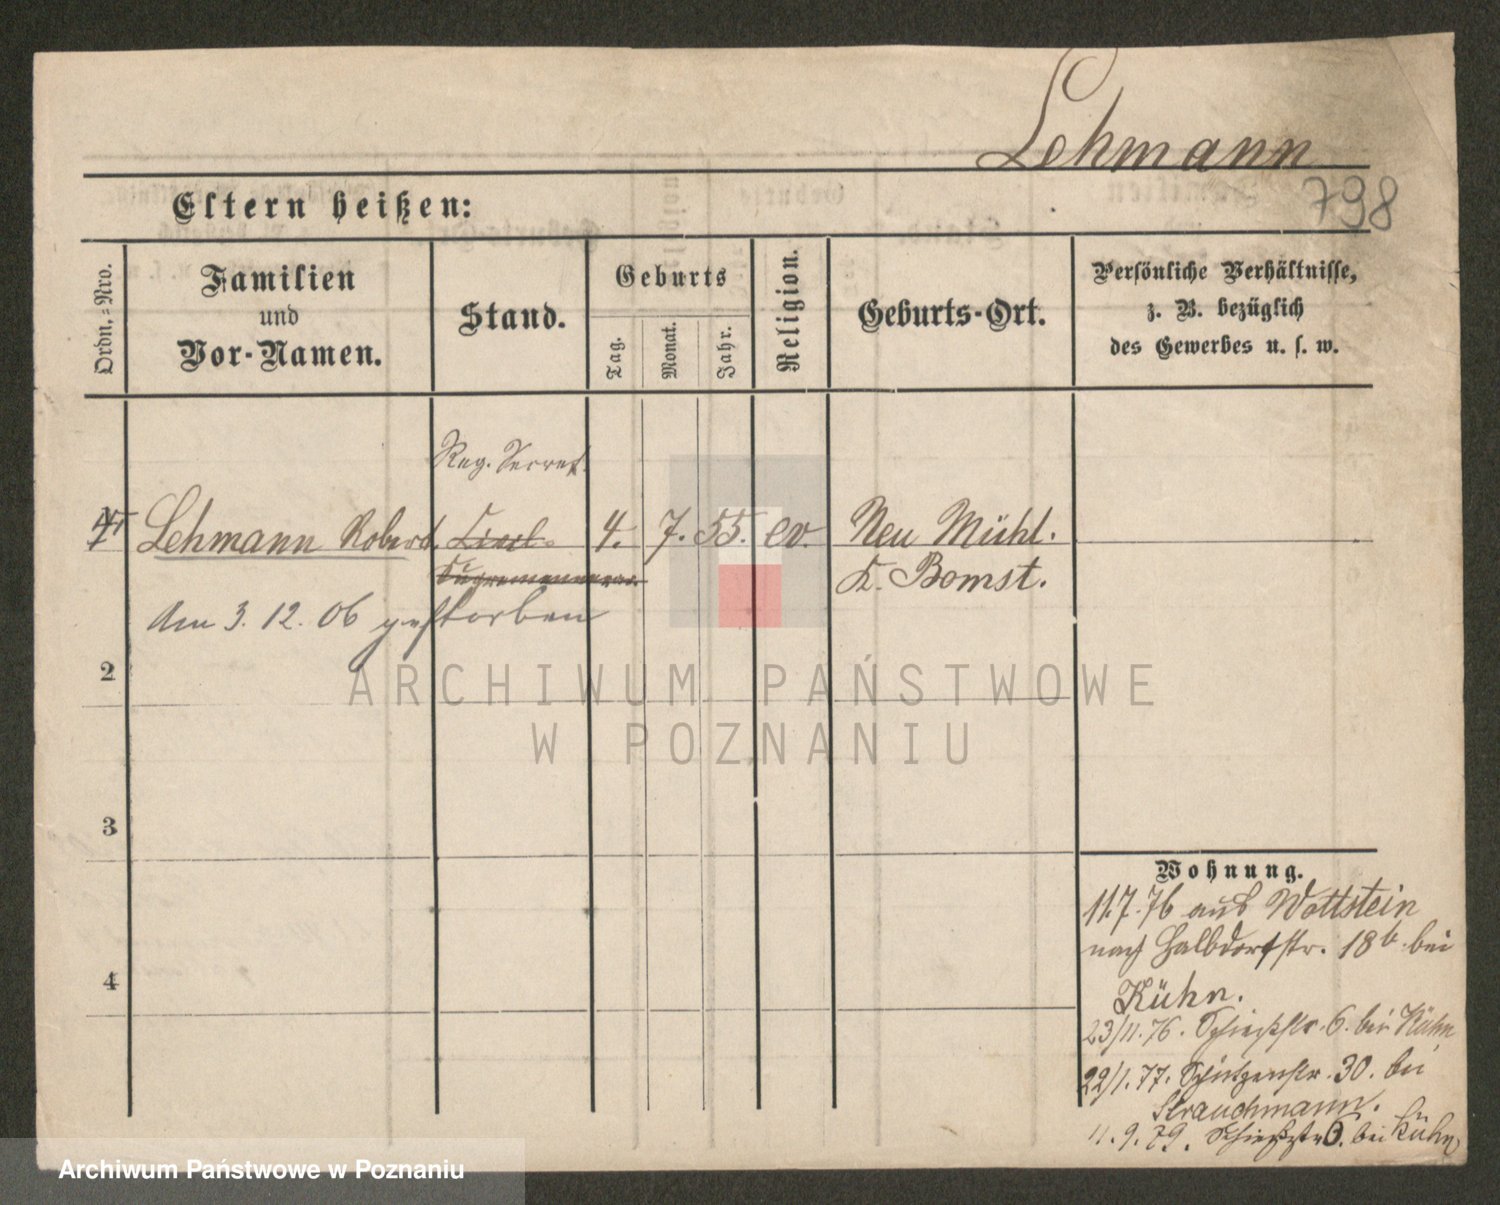 Lehmann
798
Eltern heißen:
Ordn.-Nro.
Familien
und
Vor-Namen.
Stand.
Geburts
Tag.
Monat.
Jahr.
Religion.
Geburts-Ort.
Persönliche Verhältnisse,
z. B. bezüglich
des Gewerbes u. s. w.
Reg. Secret.
Lehmann Robert. 4. 7. 55. ev. Neu Mühl.
K. Bomst.
Am 3. 12. 06 gestorben
2
3
4
Wohnung.
11.7.76 aus Wollstein
nach Halbdorfstr. 18b. bei
Kühn.
23/11.76. Schießstr. 6. bei Kühn
22/1.77. Schützenstr. 30. bei
Strauchmann.
11.9.79. Schießstr 6. bei Kühn
ARCHIWUM PAŃSTWOWE
W POZNANIU
Archiwum Państwowe w Poznaniu